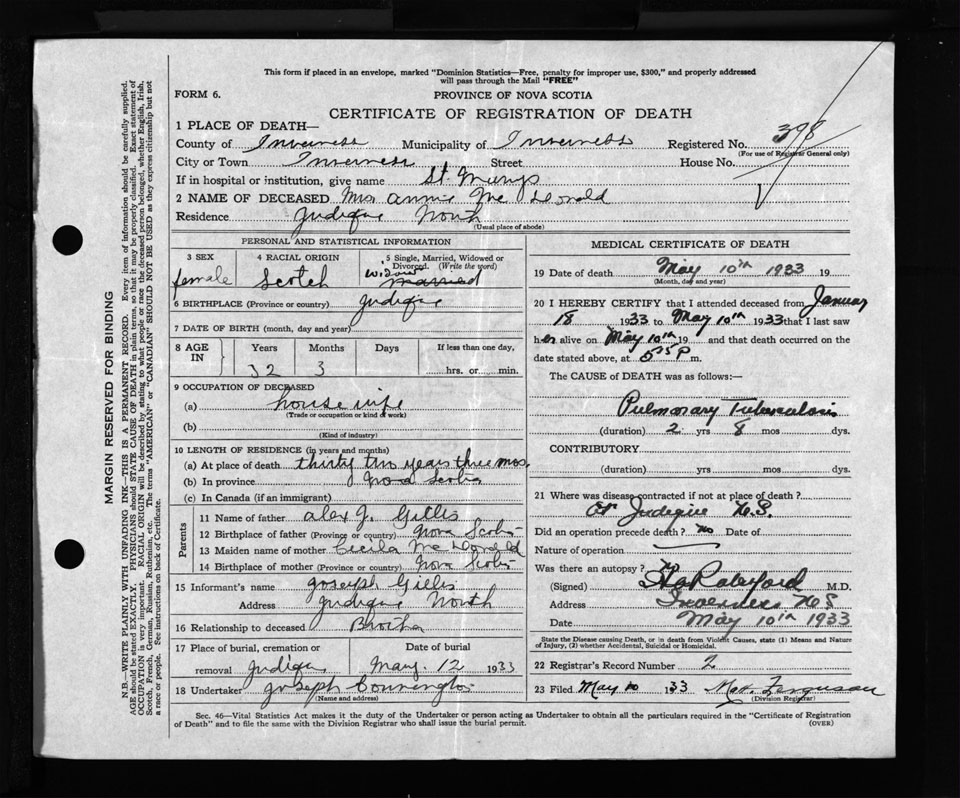 This form if placed in an envelope, marked "Dominion Statistics—Free, penalty for improper use, $300," and properly addressed
will pass through the Mail "FREE"
FORM 6. PROVINCE OF NOVA SCOTIA
CERTIFICATE OF REGISTRATION OF DEATH
1 PLACE OF DEATH—
County of Inverness Municipality of Inverness Registered No. 398
(For use of Registrar General only)
City or Town Inverness Street House No.
If in hospital or institution, give name St. Marys
2 NAME OF DECEASED Mrs Annie Mc Donald
Residence Judique North
(Usual place of abode)
PERSONAL AND STATISTICAL INFORMATION
3 SEX 4 RACIAL ORIGIN 5 Single, Married, Widowed or
Divorced. (Write the word)
female Scotch widow married
6 BIRTHPLACE (Province or country) Judique
7 DATE OF BIRTH (month, day and year)
8 AGE IN Years Months Days If less than one day,
32 3 hrs. or min.
9 OCCUPATION OF DECEASED
(a) house wife
(Trade or occupation or kind of work)
(b)
(Kind of industry)
10 LENGTH OF RESIDENCE (in years and months)
(a) At place of death thirty two years three mos.
(b) In province Nova Scotia
(c) In Canada (if an immigrant)
Parents
11 Name of father Alex J. Gillis
12 Birthplace of father (Province or country) Nova Scotia
13 Maiden name of mother Cecila Mc Donald
14 Birthplace of mother (Province or country) Nova Scotia
15 Informant's name Joseph Gillis
Address Judique North
16 Relationship to deceased Brother
17 Place of burial, cremation or Date of burial
removal Judique May. 12 1933
18 Undertaker Joseph
(Name and address)
MEDICAL CERTIFICATE OF DEATH
19 Date of death May 10th 1933 19
(Month, day and year)
20 I HEREBY CERTIFY that I attended deceased from January
18 1933 to May 10th 1933 that I last saw
her alive on May 10th 19 and that death occurred on the
date stated above, at P m.
The CAUSE of DEATH was as follows:—
Pulmonary Tuberculosis
(duration) 2 yrs 8 mos dys.
CONTRIBUTORY
(duration) yrs. mos. dys.
21 Where was disease contracted if not at place of death?
Judique N.S.
Did an operation precede death? no Date of
Nature of operation
Was there an autopsy? no
(Signed) M.D.
Address Inverness N S
Date May 10th 1933
State the Disease causing Death, or in death from Violent Causes, state (1) Means and Nature
of Injury, (2) whether Accidental, Suicidal or Homicidal.
22 Registrar's Record Number 2
23 Filed May 10 1933 Ferguson
(Division Registrar)
Sec. 46—Vital Statistics Act makes it the duty of the Undertaker or person acting as Undertaker to obtain all the particulars required in the "Certificate of Registration
of Death" and to file the same with the Division Registrar who shall issue the burial permit. (OVER)
MARGIN RESERVED FOR BINDING
N.B.—WRITE PLAINLY WITH UNFADING INK—THIS IS A PERMANENT RECORD. Every item of information should be carefully supplied.
AGE should be stated EXACTLY. PHYSICIANS should STATE CAUSE OF DEATH in plain terms, so that it may be properly classified. Exact statement of
OCCUPATION is very important. RACIAL ORIGIN will be described by stating to what people or race the deceased person belonged, whether English, Irish,
Scotch, French, German, Russian, Ruthenian, etc. The terms "AMERICAN" or "CANADIAN" SHOULD NOT BE USED as they express citizenship but not
a race or people. See instructions on back of Certificate.